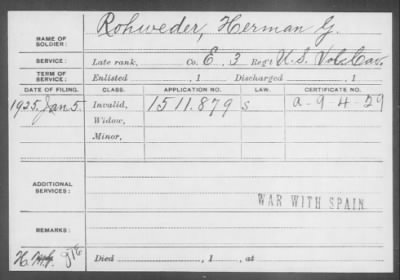 NAME OF SOLDIER: Rohweder, Herman G.
SERVICE: Late rank, Co. E. 3 Reg't U.S. Vol. Cav.
TERM OF SERVICE: Enlisted , 1 Discharged , 1
DATE OF FILING. CLASS. APPLICATION NO. LAW. CERTIFICATE NO.
1925. Jan 5. Invalid, 1511.879 S a-9-4-29
Widow,
Minor,
ADDITIONAL SERVICES:
WAR WITH SPAIN
REMARKS:
Died , 1 , at